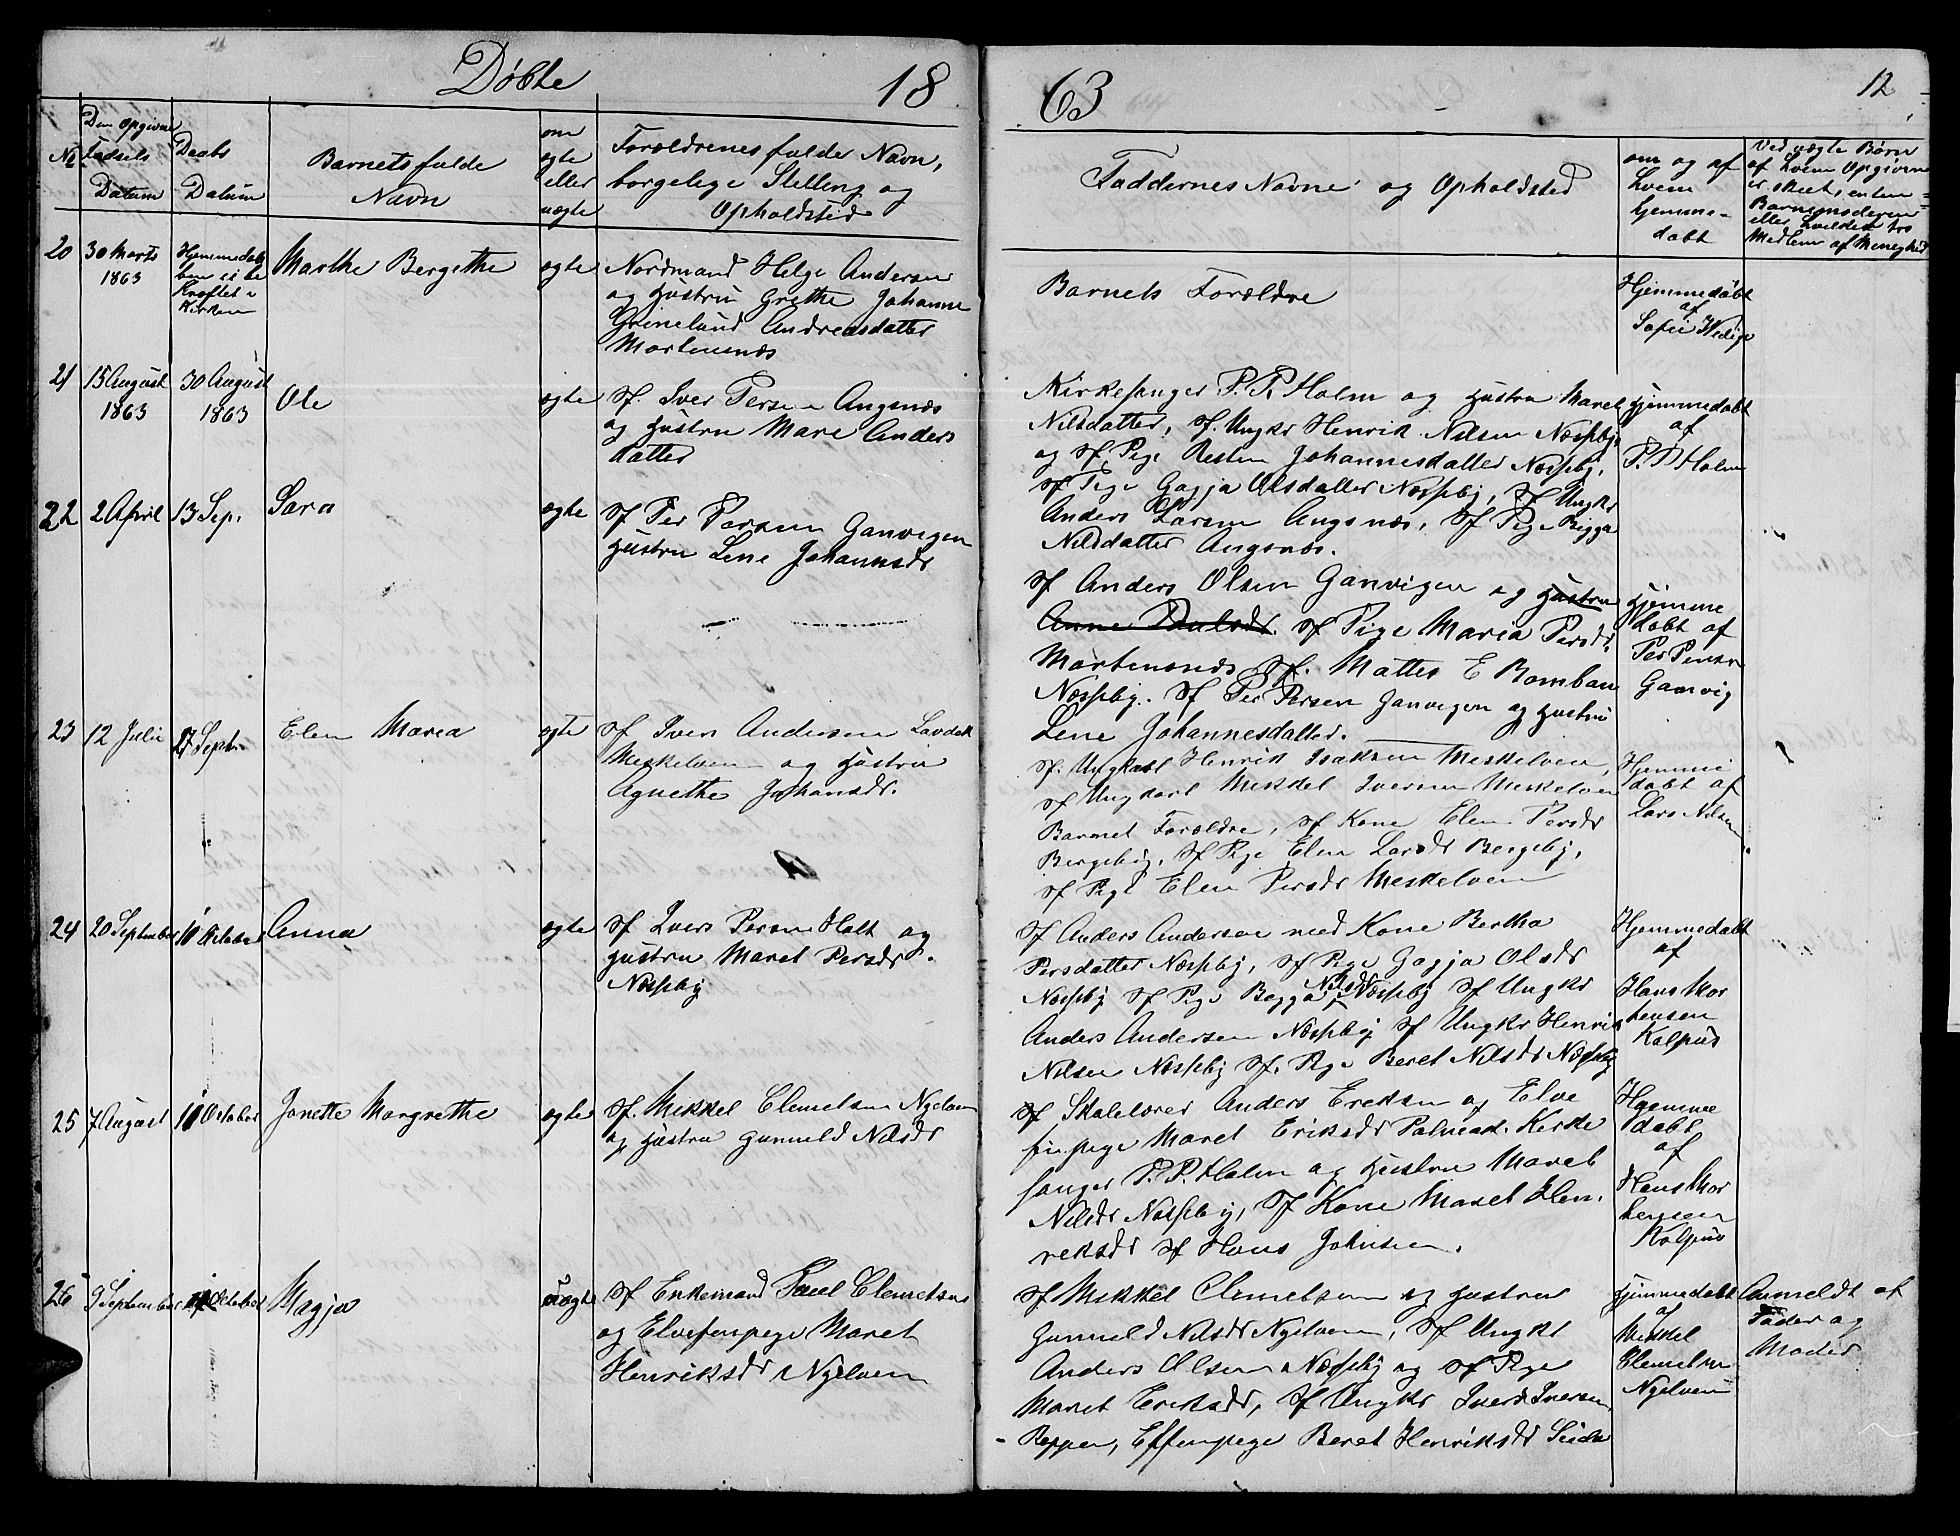 Døbte 18
63
12
No
Den opgivne
Fødsels
Datum
Daabs
Datum
Barnets fulde
Navn
om
ægte
eller
uægte
Forældrenes fulde Navn,
borgelige Stilling og
Opholdsted
Faddernes Navne og Opholdsted
om og af
hvem
hjemme-
døbt
Ved uægte Børn
af hvem Opgivne
er skeet, enten
Barnemoderen
eller hvilden tro
Medlem af Menighed
20
30 Marts
1863
Hjemmedaab
ben
Kirken
Marthe Bergethe
ægte
Nordmand Helge Andersen
og Hustru Grethe Johanne
Grinelund Andreasdatter
Mortensnæs
Barnets Forældre
Hjemmedøbt
af
Sofie Wedige
21
15 August
1863
30 August
1863
Ole
ægte
Sf. Iver Persen Angsnæs
og Hustru Mare Anders
datter
Kirkesanger P. P. Holm og Hustru Maret
Nilsdatter, Sf. Ungkr Henrik Nilsen Næsseby,
og Sf. Pige Resten Johannesdatter Næsseby,
Sf Pige Gagja Olsdatter Næsseby, Sf Ungkr
Anders Larsen Angsnæs, Sf Pige Bigga
Nilsdatter Angsnæs.
Hjemmedøbt
af
P. P. Holm
22
2 April
13 Sep.
Sara
ægte
Sf Per Persen Ganvigen
Hustru Lene Johannsdr
Sf Anders Olsen Ganvigen og Hustru
Anne Paulsdr. Sf Pige Maria Persdr.
Mortensnæs Sf. Mattes E Bomban
Næsseby. Sf Per Persen Ganvigen og Hustru
Lene Johannesdatter.
Hjemme
døbt af
Per Persen
Ganvig
23
12 Juli
27 Septr
Elen Maria
ægte
Sf Iver Andersen
Meskelven og Hustru
Agnethe Johansdr.
Sf. Ungkarl Henrik Isaksen Meskelven,
Sf Ungkarl Mikkel Iversen Meskelven
Barnet Forældre, Sf Kone Elen Persdr
Bergeby, Sf Pige Elen Larsdr Bergeby,
Sf Pige Elen Persdr Meskelven
Hjemme
døbt af
Lars Nilsen
24
20 September
11 October
Anna
ægte
Sf Ivers Persen Halt og
Hustru Maret Persdr.
Næsseby
Sf Anders Andersen med Kone Bertha
Persdatter Næsseby, Sf Pige Gagja Olsdr
Næsseby Sf Pige Bagga Nilsdr Næsseby Sf Ungkr
Anders Andersen Næsseby Sf Ungkr Henrik
Nilsen Næsseby Sf. Pige Beret Nilsdr Næsseby
Hjemmedøbt
af
Hans Mor
tensen
Kalpus
25
7 August
11 October
Janette Margrethe
ægte
Sf. Mikkel Clemetsen Nyelven
og Hustru Gunneld Nilsdr
Sf Skolelærer Anders Eriksen og Elve
finpige Maret Eriksdr Polmak. Kirke
sanger P. P. Holm og Hustru Maret
Nilsdr Næsseby, Sf Kone Maret Hen,
reksdr Sf Hans Johnsen.
Hjemme
døbt
af
Hans Mor
tensen
Kalpus
26
9 September
11 October
Magja
uægte
Sf Enkemand Poul Clemetsen
og Elvefinpige Maret
Henriksdr Nyelven
Sf Mikkel Clemetsen og Hustru
Gunneld Nilsdr Nyelven, Sf Ungkr
Anders Olsen Næsseby og Sf Pige
Maret Eriksdr, Sf Ungkr Iver Iversen
Reppen, Elffinpige Beret Henriksdr Seida
Hjemmedøbt
af
Mikkel
Clemetsen
Nyelven
Anmeldt af
Fader og
Moder